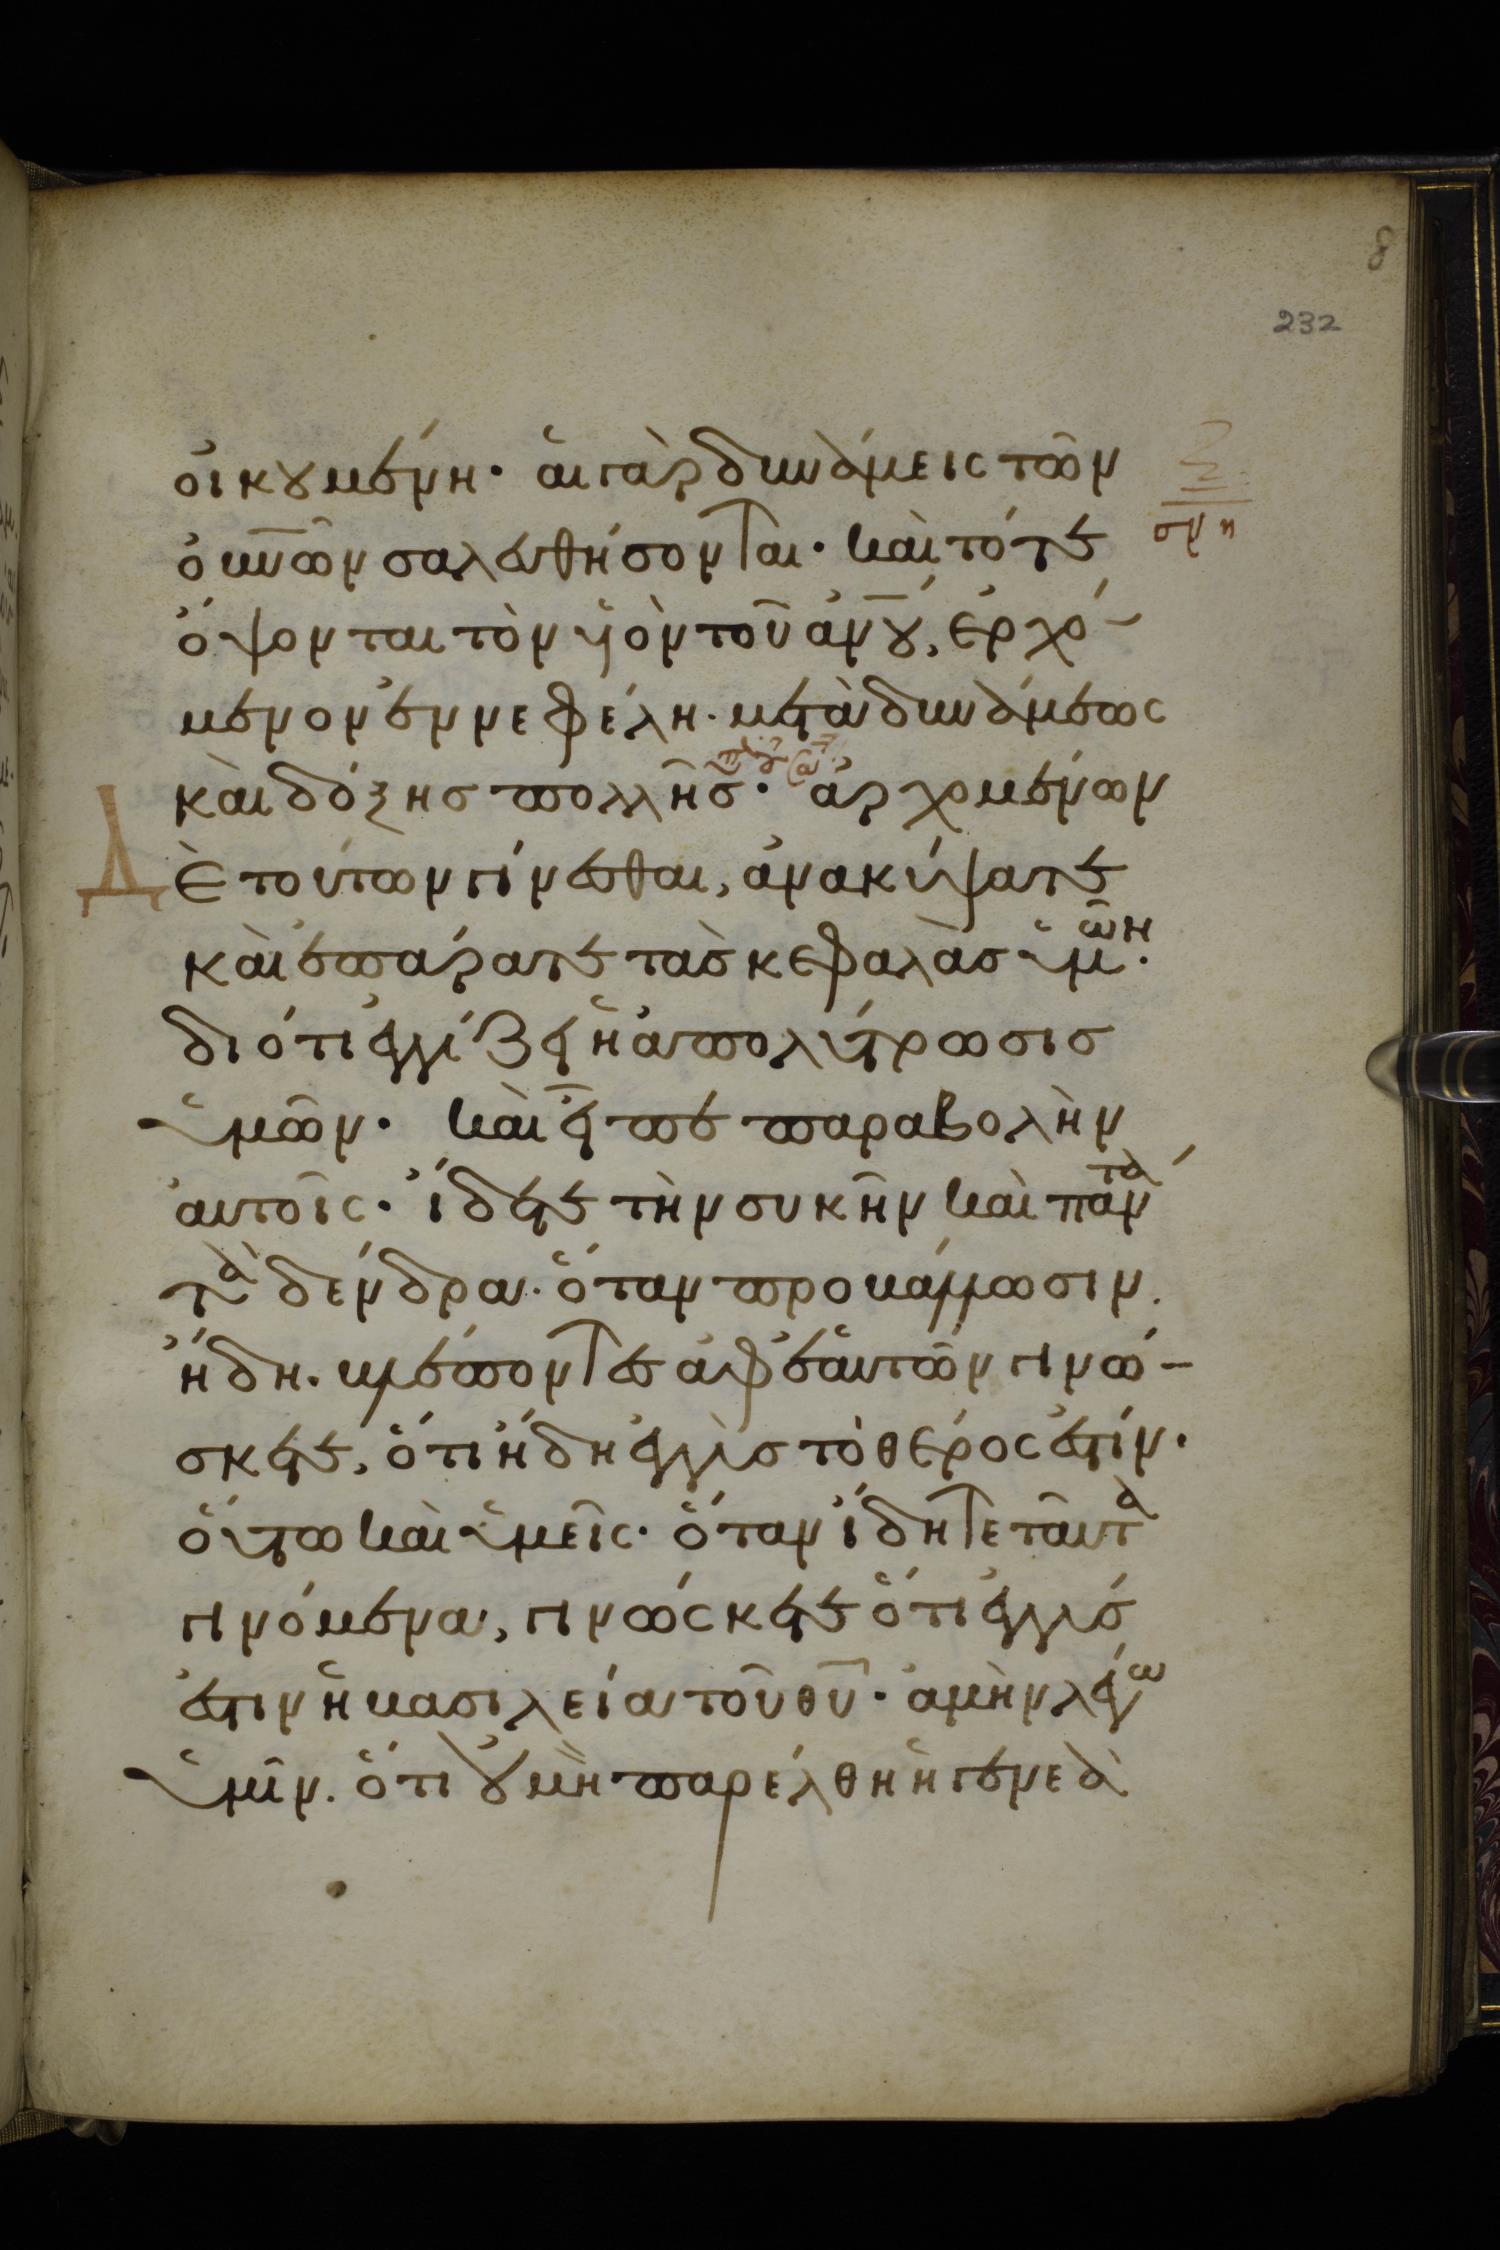 8
232
οἰκουμένη· αἱ γὰρ δυνάμεις τῶν
οὐνῶν σαλευθήσονται· καὶ τότε
ὄψονται τὸν υἱὸν τοῦ ἀνου, ἐρχό-
μενον ἐν νεφέλη· μετὰ δυνάμεως
καὶ δόξης πολλῆς· ἀρχομένων
Δὲ τούτων γίνεσθαι, ἀνακύψατε
καὶ ἐπάρατε τὰς κεφαλὰς ὑμῶν·
διότι ἐγγίζει ἡ ἀπολύτρωσις
ὑμῶν· καὶ εἶπε παραβολὴν
αὐτοῖς· ἴδετε τὴν συκῆν καὶ πάντα
τὰ δένδρα· ὅταν προβάλλωσιν
ἤδη· βλέποντες ἀφ' ἑαυτῶν γινώ-
σκετε, ὅτι ἤδη ἐγγὺς τὸ θέρος ἐστίν·
οὕτω καὶ ὑμεῖς· ὅταν ἴδητε ταῦτα
γινόμενα, γινώσκετε ὅτι ἐγγύς
ἐστιν ἡ βασιλεία τοῦ θυ· ἀμὴν λέγω
ὑμῖν· ὅτι οὐ μὴ παρέλθη ἡ γενεὰ